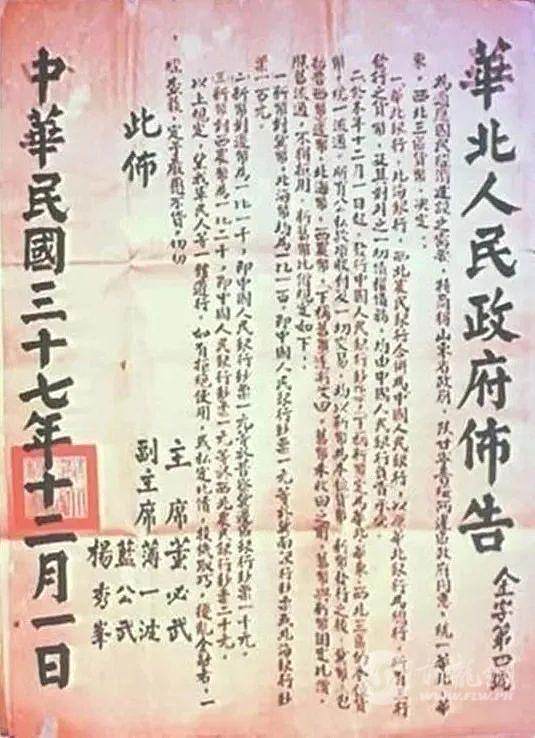 華北人民政府佈告
金字第四號
為適應國民經濟建設之需要，特商得山東省政府，陝甘寧晉綏兩邊區政府同意，統一華北、華
東、西北三區貨幣，決定：
一、華北銀行，北海銀行，西北農民銀行合併為中國人民銀行，以原華北銀行為總行，所有三行
發行之貨幣，及其對外之一切債權債務，均由中國人民銀行負責承受。
二、於本年十二月一日起，發行中國人民銀行鈔票（下稱新幣）定為華北、華東、西北三區的本位貨
幣，統一流通，所有公私款項收付及一切交易，均以新幣為本位貨幣，新幣發行之後，冀幣（包
括魯西幣）邊幣，北海幣，西農幣，（下稱舊幣）逐漸收回，舊幣未收回之前，舊幣與新幣固定比價，
照舊流通，不得拒用，新舊幣比價規定如下：
一新幣對冀幣，北海幣均為一比一百，即中國人民銀行鈔票一元等於冀南銀行鈔票或北海銀行鈔
票一百元。
二新幣對邊幣為一比一千，即中國人民銀行鈔票一元等於晉察冀邊區銀行鈔票一千元。
三新幣對西農幣為一比二千，即中國人民銀行鈔票一元等於西北農民銀行鈔票二千元。
以上規定，望我軍民人等一體遵行，如有拒絕使用，或私定比價，投機取巧，擾亂金融者，一
經查獲，定予嚴懲不貸，切切
此佈
主席 董必武
副主席 薄一波
藍公武
楊秀峯
中華民國三十七年十二月一日